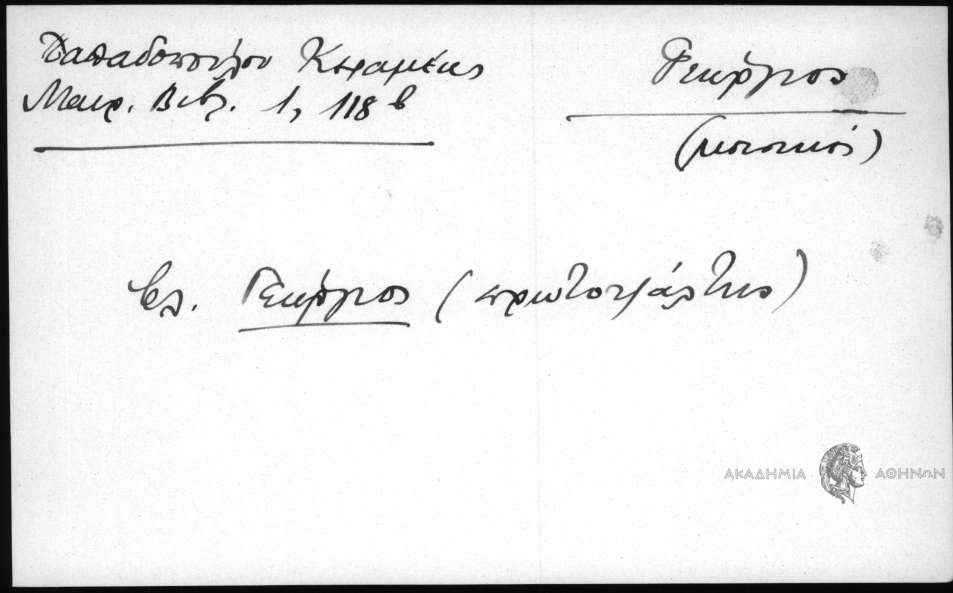 Παπαδοπούλου Κεραμέως
Μαυρ. Βιβλ. 1, 118 β
Γεώργιος
(μουσικός)
βλ. Γεώργιος (πρωτοψάλτης)
ΑΚΑΔΗΜΙΑ ΑΘΗΝΩΝ